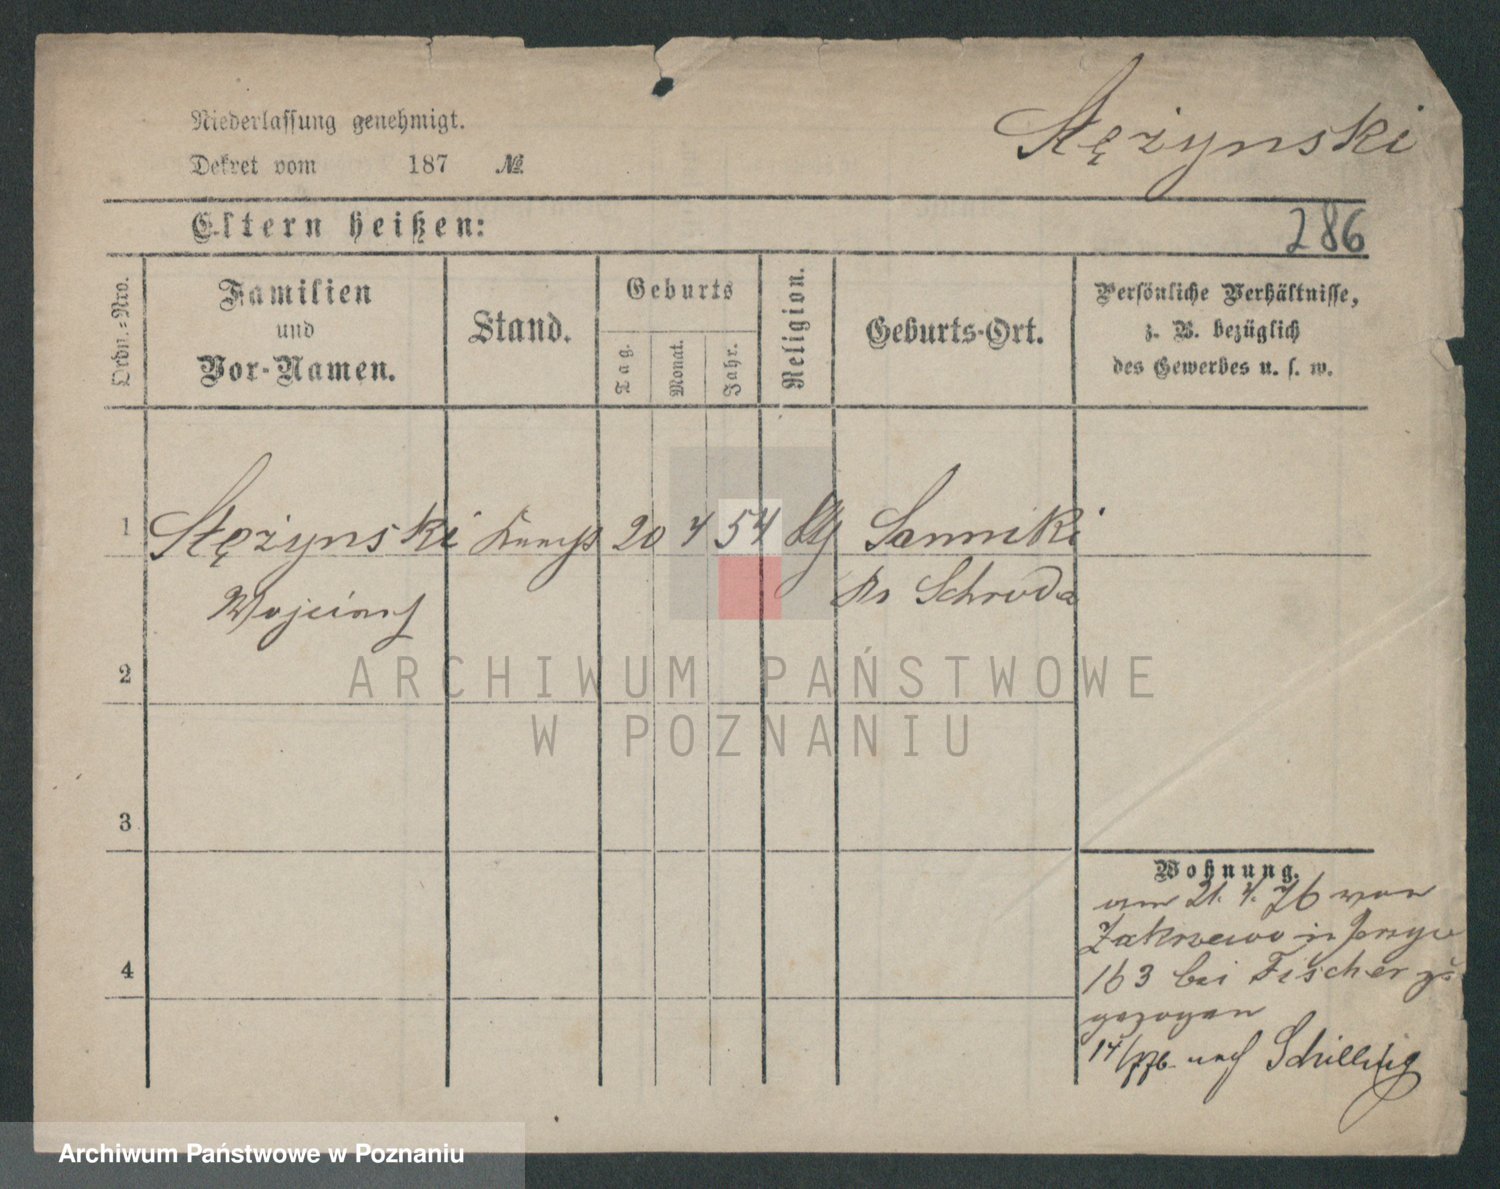 Stężynski
Niederlassung genehmigt.
Dekret vom 187 №
Eltern heißen:
286
Ordn.-Nro.
Familien
und
Vor-Namen.
Stand.
Geburts
Tag.
Monat.
Jahr.
Religion.
Geburts-Ort.
Persönliche Verhältnisse,
z. B. bezüglich
des Gewerbes u. s. w.
1 Stężynski 20 4 54 Sanniki
Ks Schroda
2
3
4
Wohnung.
am 21. 4. 76 von
Zakrzewo in
163 bei Fischer zu
gezogen
nach Schilling
ARCHIWUM PAŃSTWOWE
W POZNANIU
Archiwum Państwowe w Poznaniu